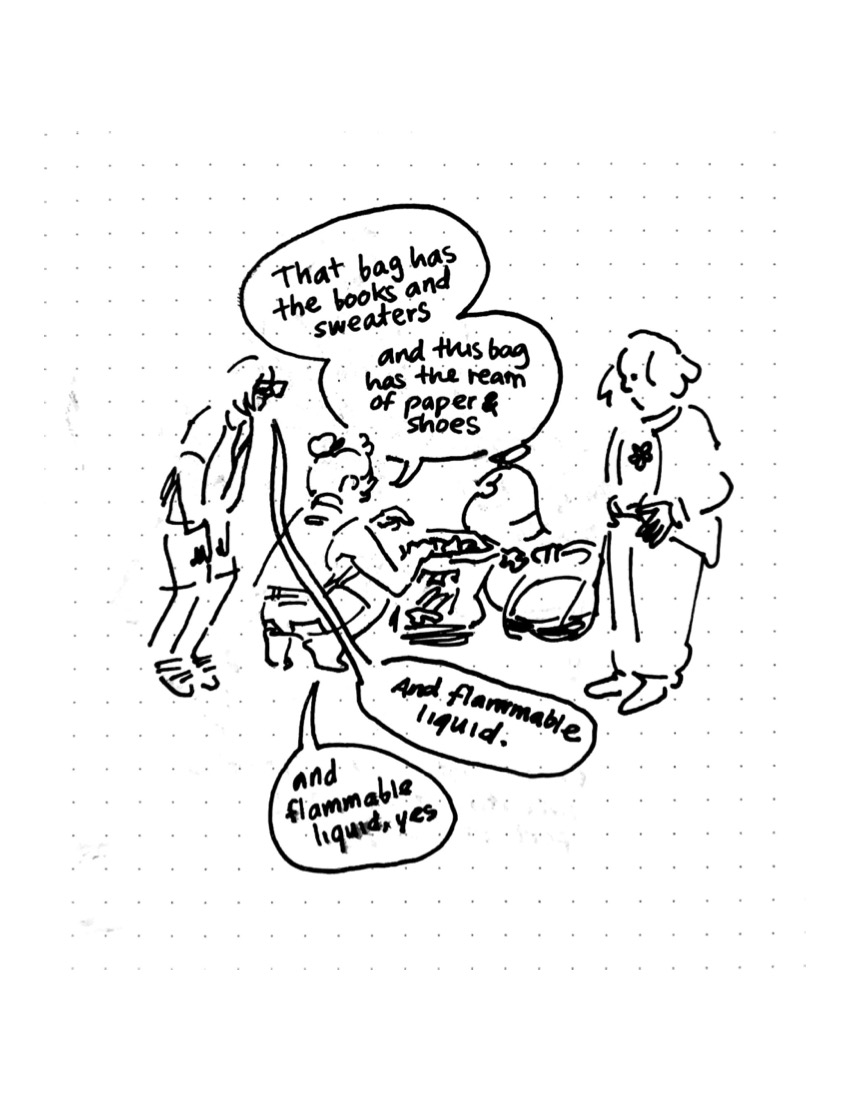 That bag has
the books and
sweaters
and this bag
has the ream
of paper &
shoes
And flammable
liquid.
and
flammable
liquid, yes